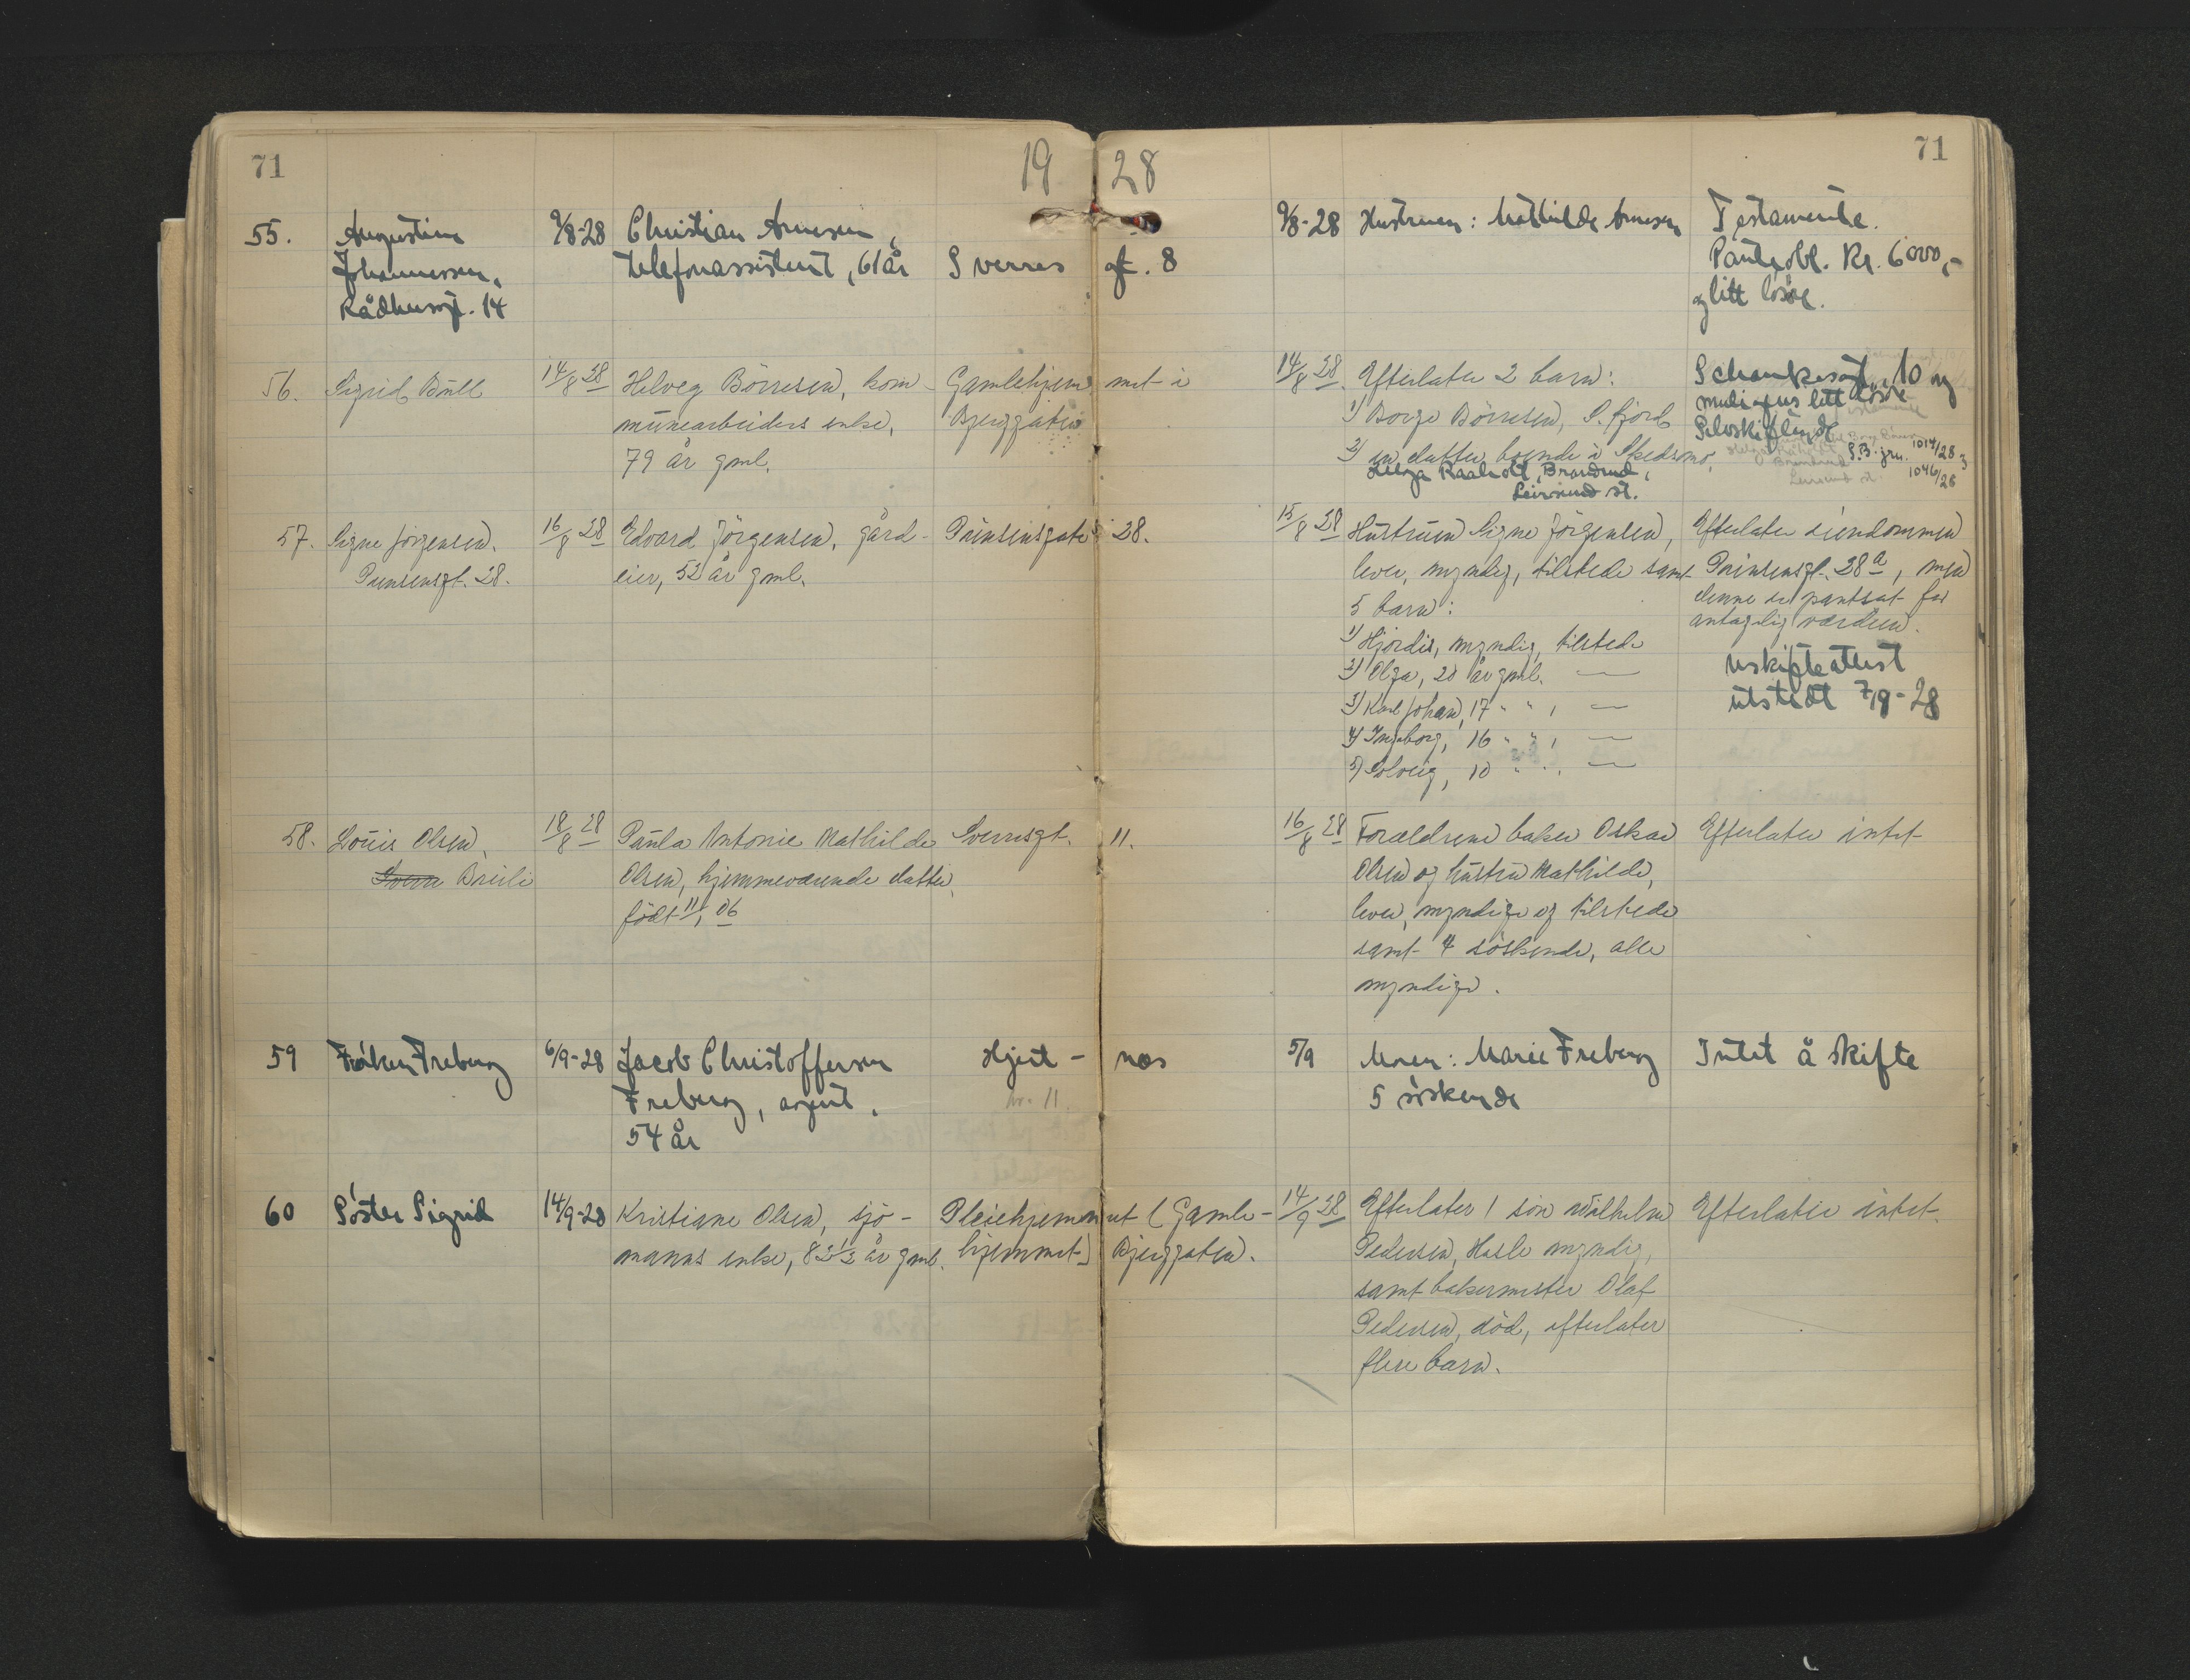 71
19 28
71
55.
Augustine
Johannessen,
Rådhusgt. 14
9/8-28
Christian Arnesen,
telefonassistent, 61 år
Sverres gt. 8
9/8-28
Hustruen: Mathilde Arnesen
Testamente.
Panteobl. Kr. 6000,-
og litt løsøre.
56.
Sigrid Bull
14/8 28
Helveg Börresen, kom-
munearbeiders enke,
79 år gml.
Gamlehjemmet i
Bjerggaten
14/8 28.
Efterlater 2 barn:
1) Borge Börresen, S.fjord
2) en datter boende i Skedsmo.
Helga Raaholt, Brandrud,
Leirsund st.
Schankesgt. 10 og
muligens litt løsøre
Selvskiftende
S.B. jrn. 1014/28 og
1046/28
57.
Signe Jörgensen.
Prinsensgt. 28.
16/8 28
Edvard Jörgensen, gård-
eier, 52 år gml.
Prinsensgate 28.
15/8 28
Hustruen Signe Jörgensen,
lever, myndig, tilstede samt
5 barn:
1) Hjördis, myndig, tilstede
2) Olga, 20 år gml. —
3) Karl Johan, 17 " " , —
4) Ingeborg, 16 " " , —
5) Solveig, 10 " " , —
Efterlater eiendommen
Prinsensgt. 28a, men
denne er pantsat for
antagelig værdien.
Uskifteattest
utstedt 7/9-28
58.
Louis Olsen,
Breili
18/8 28
Paula Antonie Mathilde
Olsen, hjemmeværende datter,
født 11/1 06
Sverresgt. 11.
16/8 28
Forældrene baker Oskar
Olsen og hustru Mathilde,
lever, myndige og tilstede
samt 4 söskende, alle
myndige.
Efterlater intet
59
Frøken Freberg
6/9-28
Jacob Christoffersen
Freberg, agent,
54 år
Hjert-nes
nr. 11
5/9
Moren: Marie Freberg
5 søskende
Intet å skifte
60
Søster Sigrid
14/9-28
Kristiane Olsen, sjö-
manns enke, 82½ år gml.
Pleiehjemmet (Gamle-
hjemmet) Bjerggaten.
14/9 28
Efterlater 1 sön Wilhelm
Pedersen, Hasle myndig,
samt bakermester Olaf
Pedersen, död, efterlater
flere barn.
Efterlater intet.